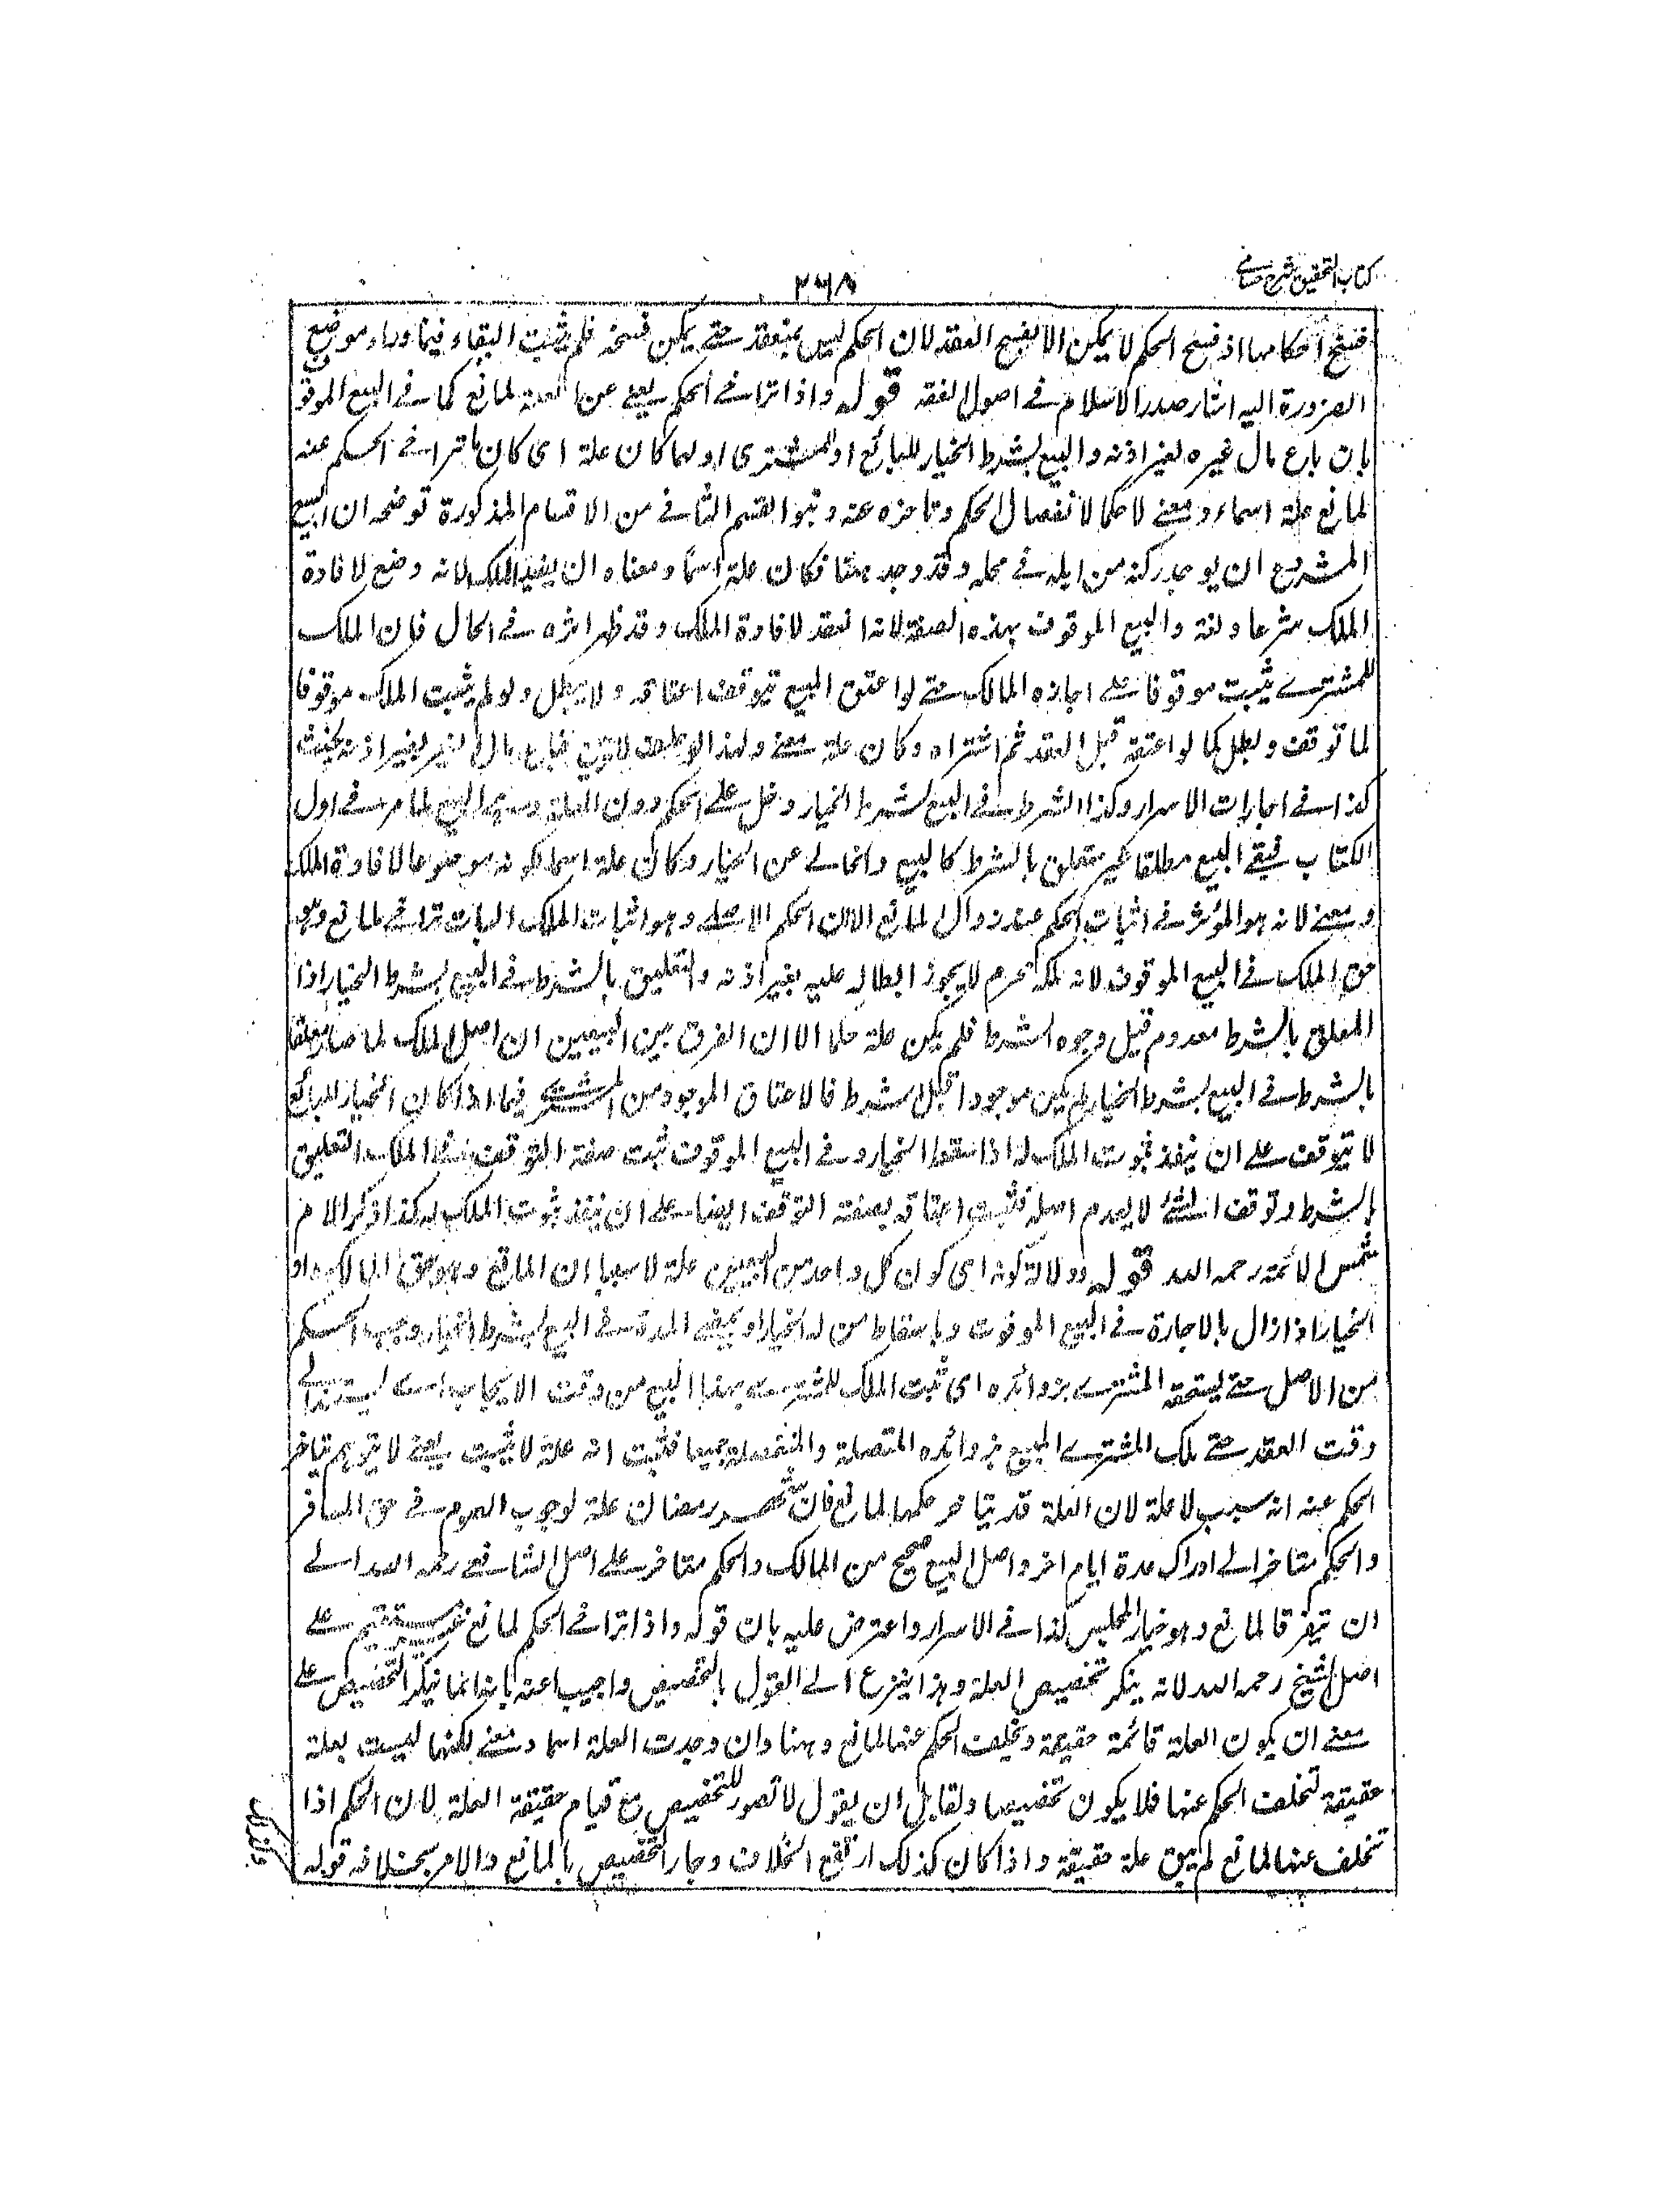 كتاب التحقيق شرح حسامي
٢٦٨
فسخ احكامها اذ فسخ الحكم لا يمكن الا بفسخ العقد لان الحكم ليس بمنعقد حتى يمكن فسخه فلم يثبت البقاء فيما وراء موضع
الضرورة اليه اشار صدر الاسلام في اصول الفقه قوله واذا تراخى الحكم يعني عن العلة لمانع كما في البيع الموقو
بان باع مال غيره بغير اذنه والبيع بشرط الخيار للبائع او المشتري او لهما كان علة اى كان ما تراخى الحكم عنه
لمانع علة اسماء ومعنى لا حكما لانفصال الحكم وتاخره عنه وهو القسم الثاني من الاقسام المذكورة توضحه ان البيع
المشروع ان يوجد ركنه من اهله في محله وقد وجد ههنا فكان علة اسمًا ومعناه ان يفيد الملك لانه وضع لافادة
الملك شرعا ولغة والبيع الموقوف بهذه الصفة لانه انعقد لافادة الملك وقد ظهر اثره في الحال فان الملك
للمشتري يثبت موقوفا على اجازه المالك حتى لو اعتق المبيع يتوقف اعتاقه ولا يبطل ولو لم يثبت الملك موقوفا
لما توقف ولبطل كما لو اعتقه قبل العقد ثم اشتراه وكان علة معنى ولهذا لو حلف لا يبيع فباع مال الغير بغير اذنه يحنث
كذا في اجارات الاسرار وكذا الشرط في البيع بشرط الخيار دخل على الحكم دون العلة وهي البيع لما مر في اول
الكتاب فبقي البيع مطلقا غير متعلق بالشرط كالبيع والخالي عن الخيار وكان علة اسما لكونه موضوعا لافادة الملك
ومعنى لانه هو المؤثر في اثبات الحكم عند زوال المانع الا ان الحكم الاصلي وهو اثبات الملك البات تراخى لمانع وهو
حق الملك في البيع الموقوف لانه ملك محرم لا يجوز ابطاله عليه بغير اذنه والتعليق بالشرط في البيع بشرط الخيار اذا
المعلق بالشرط معدوم قبل وجود الشرط فلم يكن علة حكما الا ان الفرق بين البيعين ان اصل الملك لما صار معلقا
بالشرط في البيع بشرط الخيار لم يكن موجودا قبل الشرط فالاعتاق الموجود من المشتري فيما اذا كان الخيار للبائع
لا يتوقف على ان ينفذ ثبوت الملك له اذا سقط الخيار وفي البيع الموقوف ثبت صفة التوقف في الملك لا التعليق
بالشرط وتوقف الشئ لا يعدم اصله فثبت اعتاقه بصفة التوقف ايضا على ان ينفذ ثبوت الملك له كذا ذكر الامام
شمس الائمة رحمه الله قوله ودلالة كونه اى كون كل واحد من البيعين علة لا سببا ان المانع وهو حق المالك او
الخيار اذا زال بالاجازة في البيع الموقوف وباسقاط من له الخيار او بمضي المدة في البيع بشرط الخيار وجب الحكم
من الاصل حتى يستحقه المشتري بزوائده اى ثبت الملك للمشتري بهذا البيع من وقت الايجاب اى يستند الى
وقت العقد حتى ملك المشتري المبيع بزوائده المتصلة والمنفصلة جميعا فثبت انه علة لا سبب يعني لا يتوهم بتاخر
الحكم عنه انه سبب لا علة لان العلة قد يتاخر حكمها لمانع فان شهر رمضان علة لوجوب الصوم في حق المسافر
والحكم متاخر الى ادراك عدة ايام اخر واصل البيع صحيح من المالك والحكم متاخر على اصل الشافعي رحمه الله الى
ان يتفرقا لمانع وهو خيار المجلس كذا في الاسرار واعترض عليه بان قوله واذا تراخى الحكم لمانع غير مستقيم على
اصل الشيخ رحمه الله لانه ينكر تخصيص العلة وهذا ينزع الى القول بالتخصيص واجيب عنه بانه انما ينكر التخصيص على
معنى ان يكون العلة قائمة حقيقة وتخلف الحكم عنها لمانع وههنا وان وجدت العلة اسما ومعنى لكنها ليست بعلة
حقيقة لتخلف الحكم عنها فلا يكون تخصيصا ولقائل ان يقول لا تصور للتخصيص مع قيام حقيقة العلة لان الحكم اذا
تخلف عنها لمانع لم يبق علة حقيقة واذا كان كذلك ارتفع الخلاف وجاز التخصيص بالمانع والامر بخلافه قوله